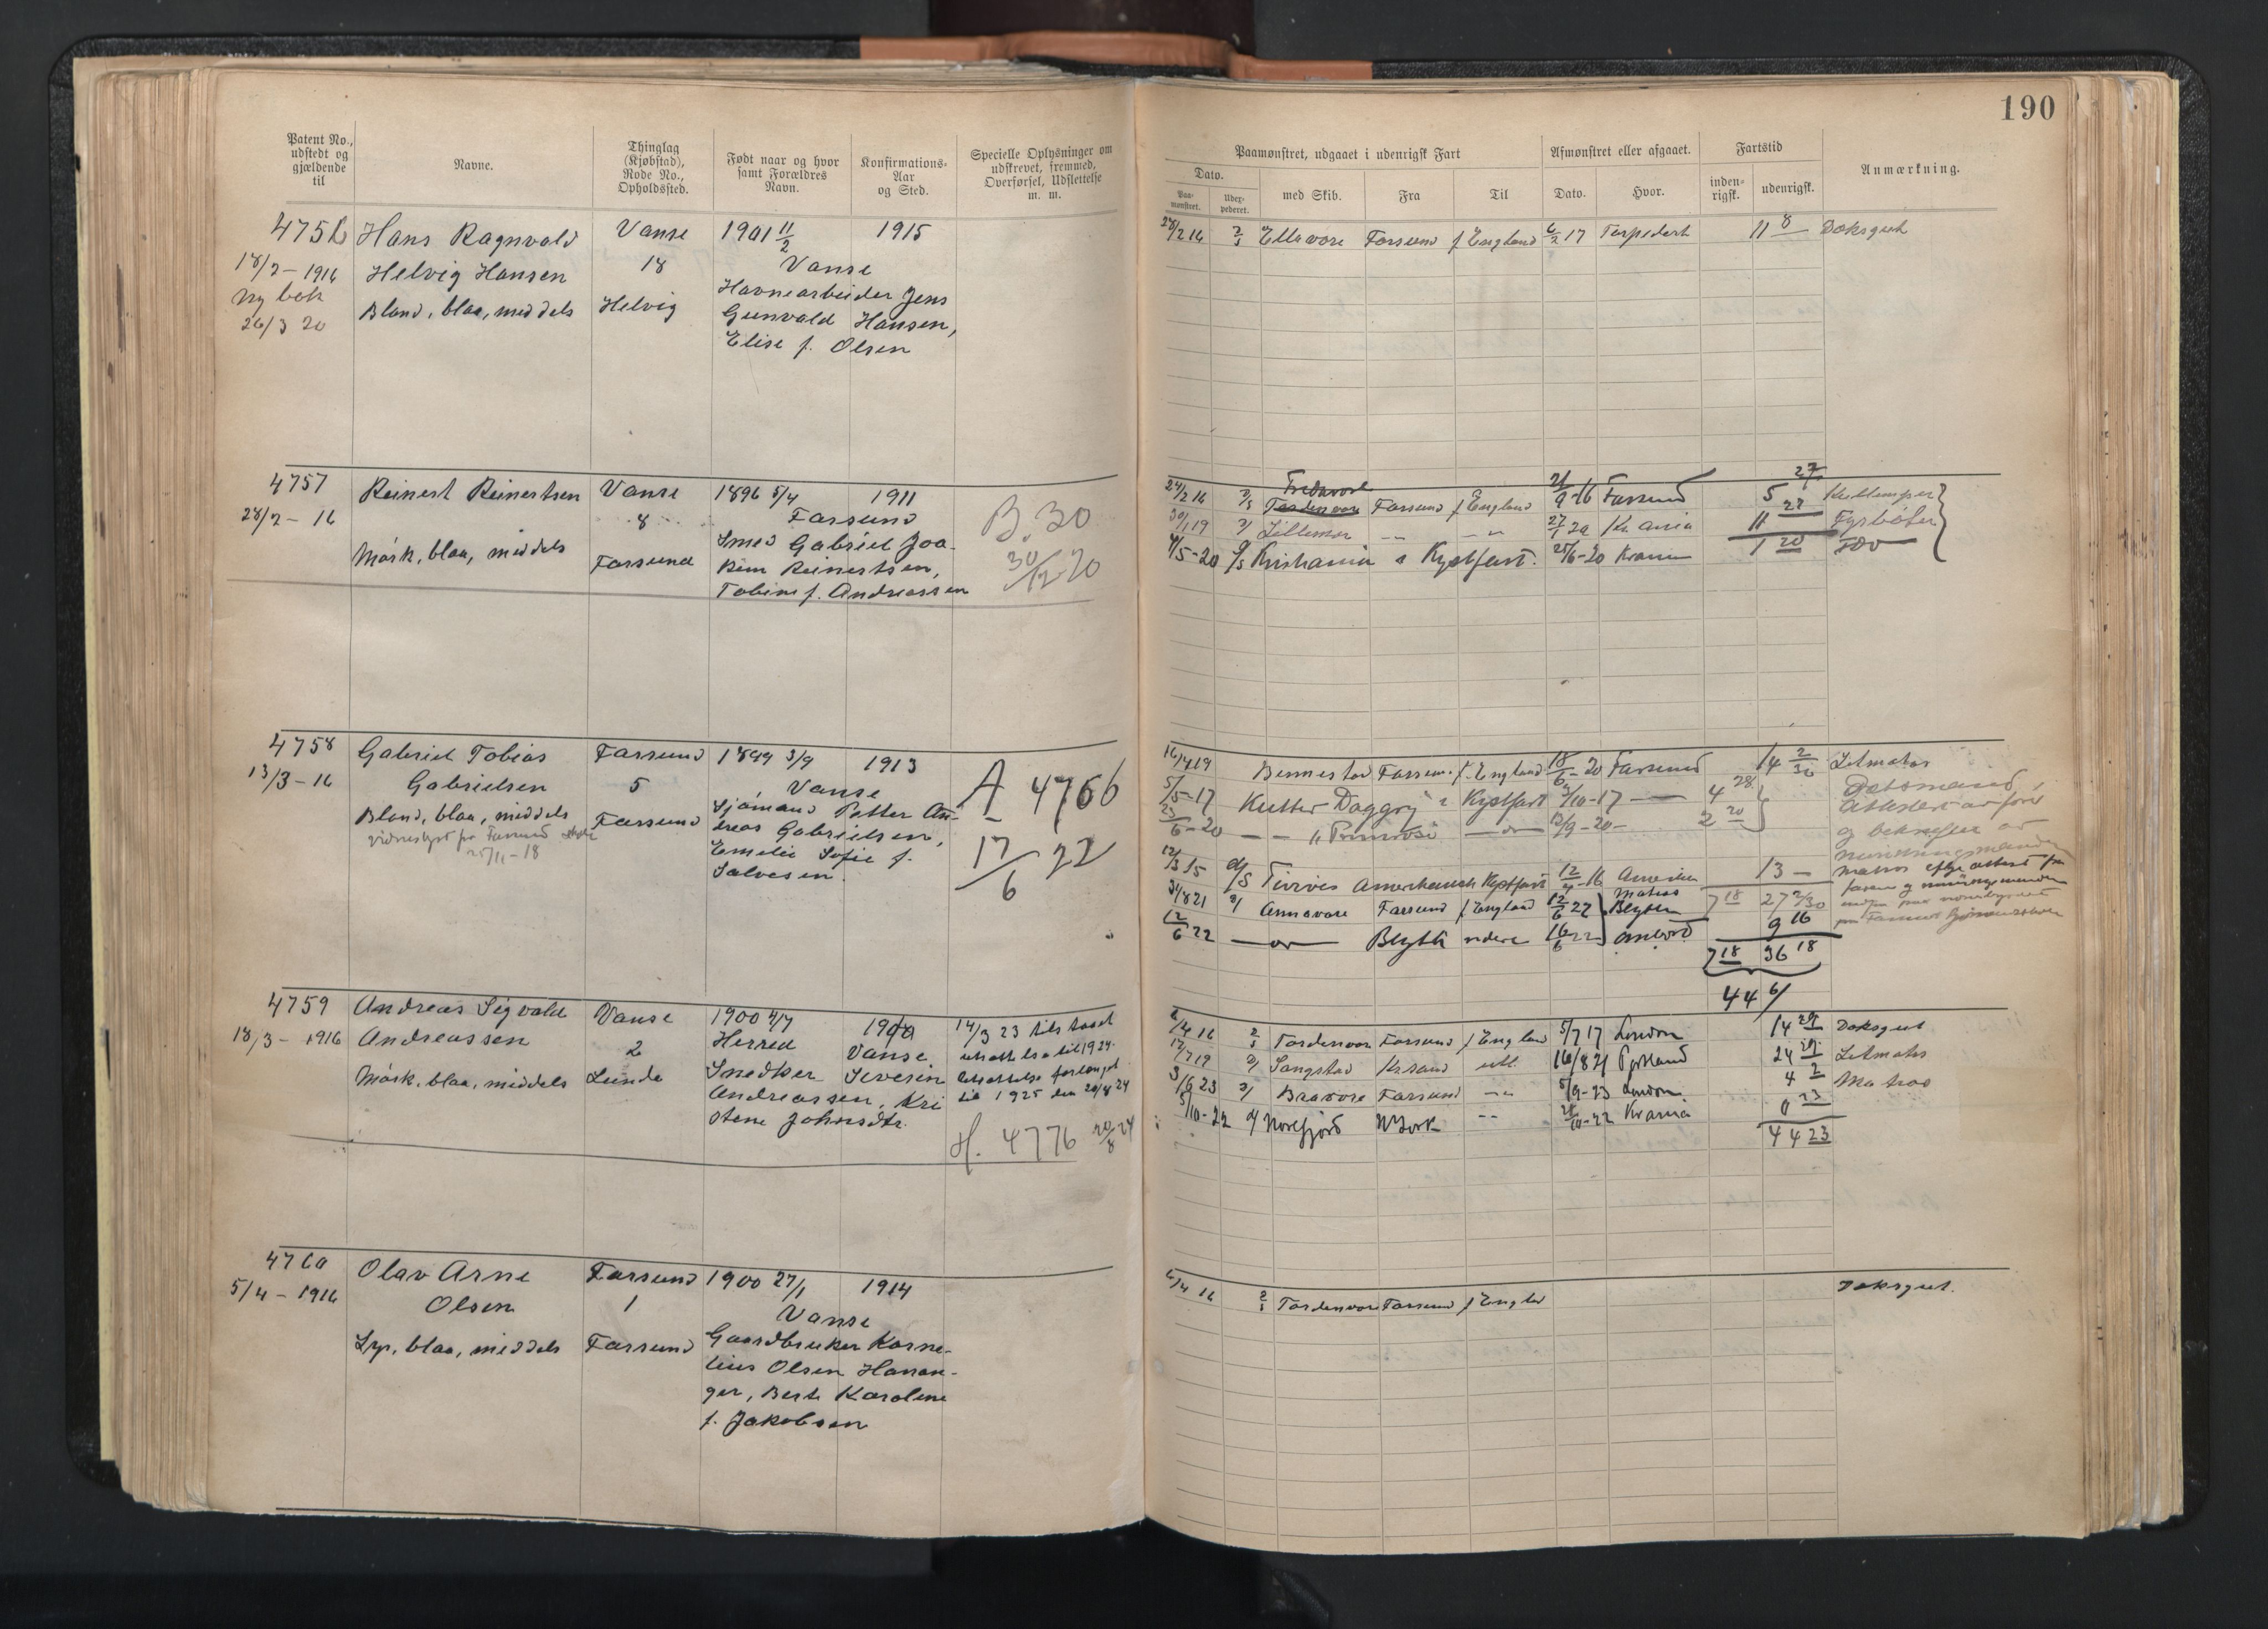 190
Patent No., udstedt og gjældende til
Navne.
Thinglag (Kjøbstad), Rode No., Opholdssted.
Født naar og hvor samt Forældres Navn.
Konfirmations-Aar og Sted.
Specielle Oplysninger om udskrevet, fremmed, Overførsel, Udslettelse m. m.
Paamønstret, udgaaet i udenrigsk Fart
Afmønstret eller afgaaet.
Fartstid
Anmærkning.
Dato.
Paa-mønstret.
Uderpederet.
med Skib.
Fra
Til
Dato.
Hvor.
inden-rigsk.
udenrigsk.
4756 Hans Ragnvald Vanse 1901 11/2 1915
18/2 - 1916 Helvig Hansen 18 Vanse
Ny bok Havnearbeider Jens
26/3 20 Blond, blaa, middels Helvig Gunvald Hansen,
Elise f. Olsen
28/2 16 Ellavore Farsund f England 6/2 17 Torpedert 11 8 Doksgut
4757 Reinert Reinertsen Vanse 1896 5/4 1911
28/2 - 16 8 Farsund
Mörk, blaa, middels Farsund Smed Gabriel Joa-
kim Reinertsen,
Tobine f. Andreassen
B. 30
30/12-20
Fredavore
24/2 16 Tordenvore Farsund f England 21/9-16 Farsund 5 27 Kullemper
30/1 19 Lillemor -"- -"- 27/1 20 Kr.ania 11 27 Fyrböter
4/5-20 Kristiania i Kystfart. 25/6-20 Krania 1 20 Do
4758 Gabriel Tobias Farsund 1899 3/9 1913
13/3 - 16 Gabrielsen 5 Vanse
Blond, blaa, middels Farsund Sjömand Petter An-
dreas Gabrielsen,
Emelie Sofie f.
Salvesen.
25/11-18
A 4766
17/6 22
16/4 19 Bennestad Farsun. f. England 18/6-20 Farsund 14 2/30 Letmatros
5/5-17 Kutter Daggry i Kystfart 3/10-17 4 28 Dæksmand,
23/6-20 "Primrose" 13/9-20- 2 20 Attestert av fører
og bekræftet av
12/3 15 Tivives Amerikansk Kystfart 12/4-16 Amerika 13 - Matros efter attest fra
31/8 21 Annavore Farsund f England 12/6 22 Matros Blyth 7 18 27 2/30
12/6 22 Blyth videre 16/6 22 ombord 9 16
7 18 36 18
44 6/
4759 Andreas Sigvald Vanse 1900 4/7
18/3 - 1916 Andreassen 2 Herred Vanse
Mörk, blaa, middels Lunde Snedker Severin
Andreassen, Kri
stene Johnsdtr.
14/3 23 tilstaaet
utsættelse til 1924.
Utsættelse forlænget
til 1925 den 20/8 24
H. 4776 20/8 24
6/4 16 Tordenvore Farsund f England 5/7 17 London 14 29 Doksgut
12/7 19 Sangstad Kr.sand utl. 16/8 21 Portland 24 29 Letmatros
3/6 23 Braavore Farsund -"- 5/9-23 London 4 2 Matros
5/10-22 Norefjord N York -"- 28/10-22 Krania 0 23
44 23
4760 Olav Arne Farsund 1900 27/1 1914
5/4 - 1916 Olsen 1 Vanse
Lys, blaa, middels Farsund Gaardbruker Korne-
lius Olsen Hanan-
ger, Berte Karoline
f. Jakobsen
6/4 16 Tordenvore Farsund f Englad Doksgut.